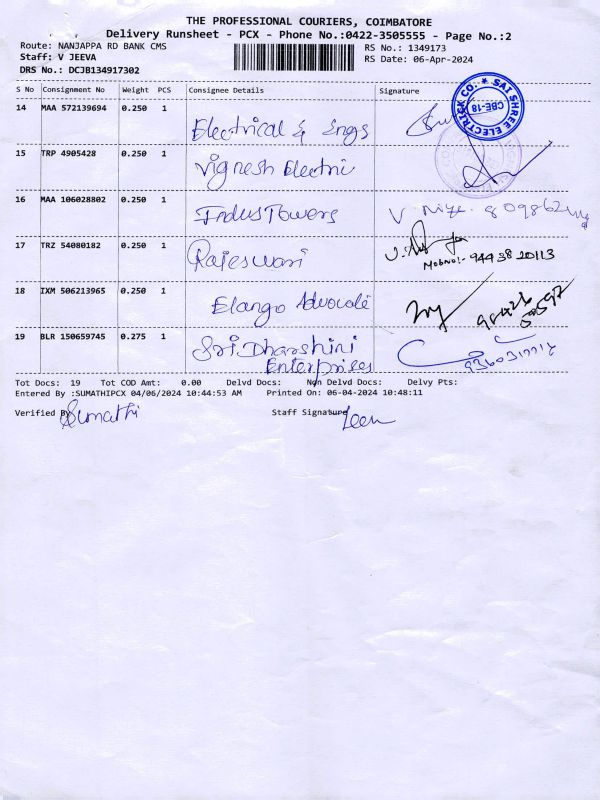 THE PROFESSIONAL COURIERS, COIMBATORE
Delivery Runsheet - PCX - Phone No.:0422-3505555 - Page No.:2
Route: NANJAPPA RD BANK CMS RS No.: 1349173
Staff: V JEEVA RS Date: 06-Apr-2024
DRS No.: DCJB134917302
S No Consignment No Weight PCS Consignee Details Signature
14 MAA 572139694 0.250 1 Electrical & Engs
SAI SHREE ELECTRICK CO. CBE-18
15 TRP 4905428 0.250 1 Vignesh Electri
16 MAA 106028802 0.250 1 Indus Towers
17 TRZ 54080182 0.250 1 Rajeswari
Mob No:- 94438 20113
18 IXM 506213965 0.250 1 Elango Advocate
19 BLR 150659745 0.275 1 Sri Dharshini
Enterprises
Tot Docs: 19 Tot COD Amt: 0.00 Delvd Docs: Non Delvd Docs: Delvy Pts:
Entered By :SUMATHIPCX 04/06/2024 10:44:53 AM Printed On: 06-04-2024 10:48:11
Verified By Sumathi Staff Signature